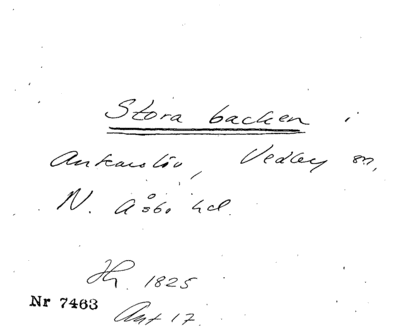 Stora backen i
Ankarslöv, Vedby sn,
N. Åsbo hd.
Jh. 1825
Nr 7463
Ant 17